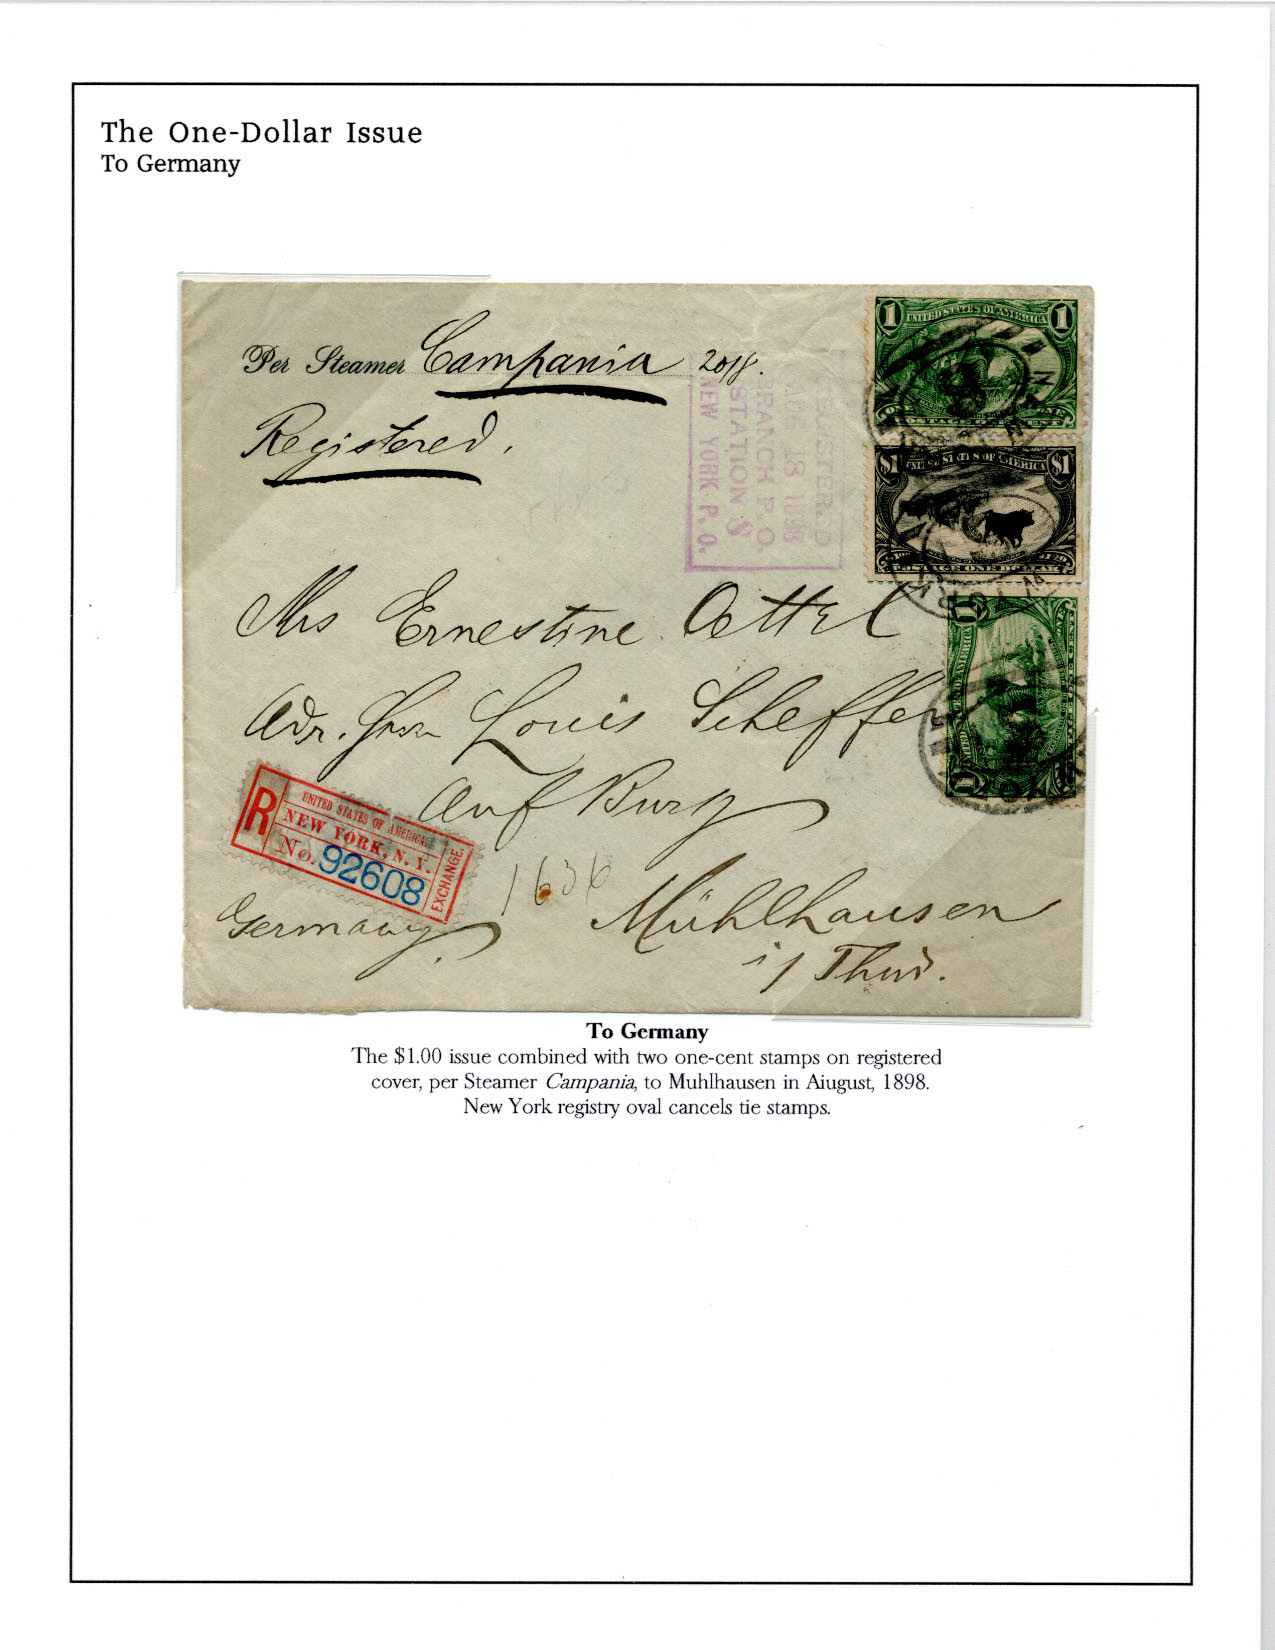 The One-Dollar Issue
To Germany
Per Steamer Campania 20/8.
Registered.
REGISTERED
AUG 18 1898
BRANCH P.O.
STATION S
NEW YORK P.O.
1 UNITED STATES OF AMERICA 1
POSTAGE ONE CENT
$1 UNITED STATES OF AMERICA $1
POSTAGE ONE DOLLAR
1 UNITED STATES OF AMERICA 1
Mrs Ernestine Oettel
Adr. Louis Scheffer
Auf Burg
R
UNITED STATES OF AMERICA.
NEW YORK, N. Y.
No. 92608
EXCHANGE.
1636
Mühlhausen
i/ Thür.
Germany.
To Germany
The $1.00 issue combined with two one-cent stamps on registered
cover, per Steamer Campania, to Muhlhausen in Aiugust, 1898.
New York registry oval cancels tie stamps.